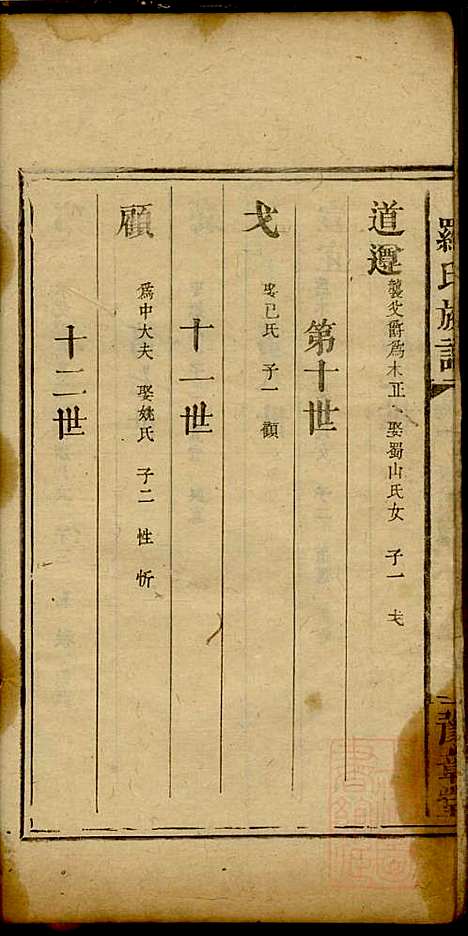 羅氏族譜
豫章堂
道遵 襲父爵為木正、娶蜀山氏女 子一 戈
第十世
戈 娶己氏 子一 顧
十一世
顧 為中大夫、娶姚氏 子二 性 忻
十二世